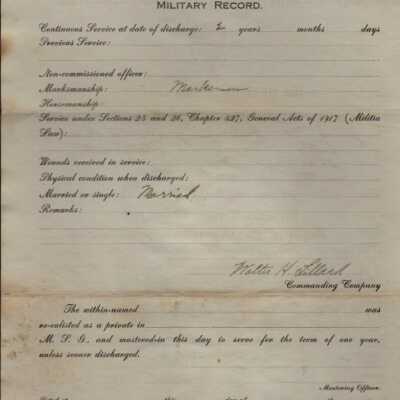 MILITARY RECORD.
Continuous Service at date of discharge: 2 years months days
Previous Service:
Non-commissioned officer:
Marksmanship: Marksman
Horsemanship:
Service under Sections 25 and 26, Chapter 327, General Acts of 1917 (Militia
Law):
Wounds received in service:
Physical condition when discharged:
Married or single: Married.
Remarks:
Walter H. Lillard
Commanding Company
The within-named was
re-enlisted as a private in
M. S. G., and mustered-in this day to serve for the term of one year,
unless sooner discharged.
Mustering Officer.